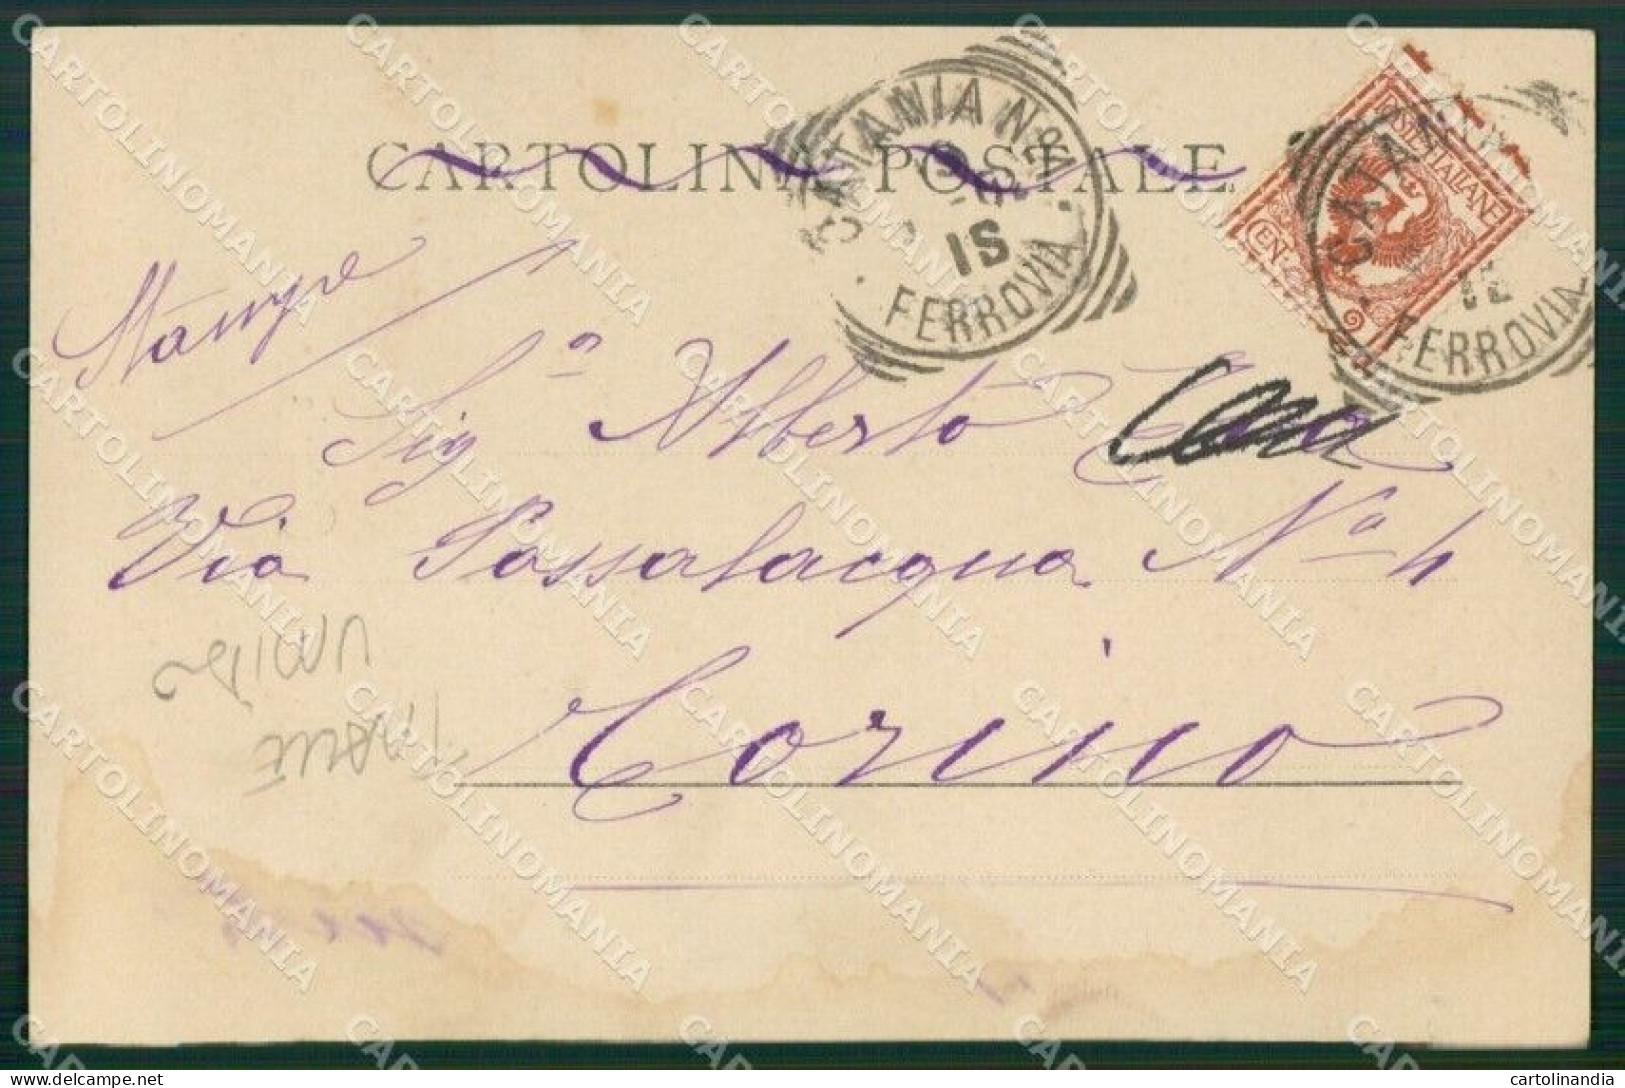 CARTOLINA POSTALE
CATANIA N.
1S
FERROVIA
POSTE ITALIANE
CEN. 2
CATANIA
FERROVIA
Stampe
Sig.a Alberto
Via Passalacqua No 4
Torino
CARTOLINOMANIA
cartolinandia